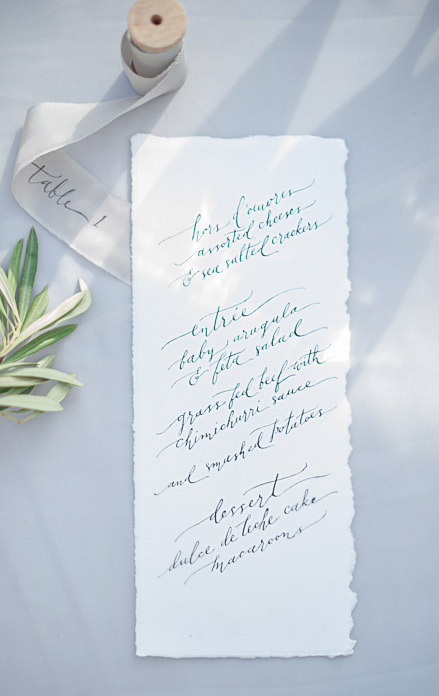 table 1
hors d'ouvores
assorted cheeses
& sea salted crackers
entrée
baby arugula
& feta salad
grass fed beef with
chimichurri sauce
and smashed potatoes
dessert
dulce de leche cake
macaroons